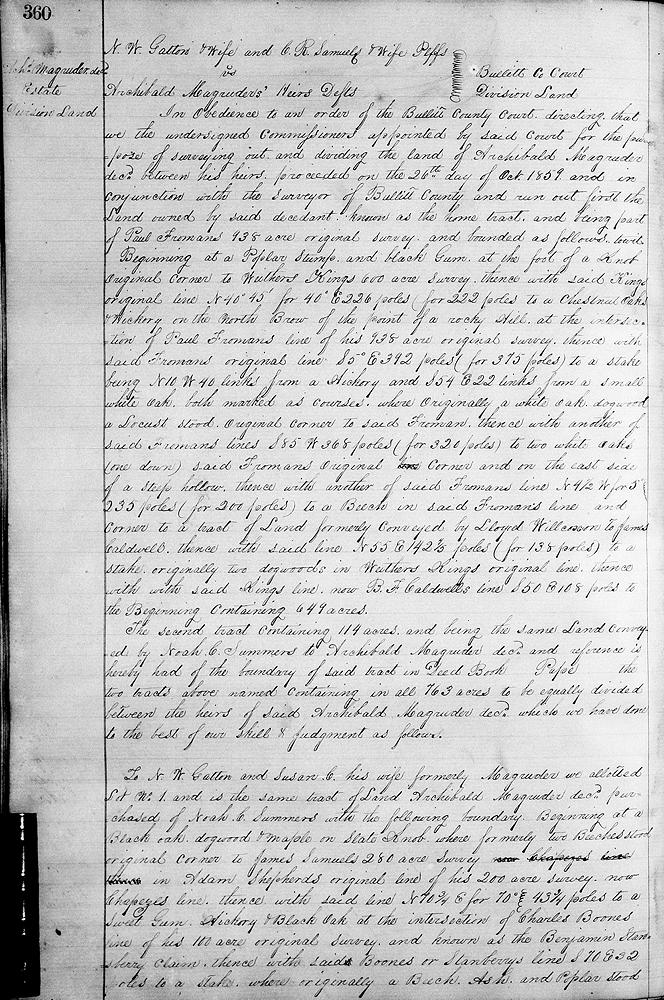 360
Archd. Magruder, decd
Estate
Division Land
N. W. Gatton & Wife and C. R. Samuels & Wife Plffs
vs
Archibald Magruders' Heirs Defts
Bullitt Co Court
Division Land
In Obedience to an order of the Bullitt County Court. directing that
we the undersigned Commissioners appointed by said Court for the pur
-poze of surveying out. and dividing the land of Archibald Magruder
decd. between his heirs. proceeded on the 26th day of Oct. 1859 and in
conjunction with the surveyor of Bullitt County and run out first the
Land owned by said decedant. known as the home tract. and being part
of Paul Fromans 938 acre original survey. and bounded as follows. towit
Beginning at a Poplar stump. and black Gum. at the foot of a Knob
Original Corner to Withers Kings 600 acre Survey. thence with said Kings
original line N 40° 45' for 40° E 226 poles (for 222 poles to a Chesnut Oak
& Hickory on the North Brow of the point of a rocky Hill. at the intersec-
tion of Paul Fromans line of his 938 acre original survey. thence with
said Fromans original line S 5° E 392 poles (for 375 poles) to a stake
being N 10 W 40 links from a Hickory and S 54 E 22 links from a small
white Oak. both marked as courses. where Originally a white Oak. dogwood
a Locust stood. Original Corner to said Froman. thence with another of
said Fromans lines S 85 W 368 poles (for 320 poles) to two white Oaks
(one down) said Fromans Original line Corner and on the east side
of a steep hollow. thence with another of said Fromans line N 4½ W for 5° (
235 poles (for 200 poles) to a Beech in said Froman's line and
Corner to a tract of Land formerly Conveyed by Lloyd Willcoxson to James
Caldwell. thence with said line N 55 E 142 poles (for 138 poles) to a
stake. originally two dogwoods in Withers Kings original line. thence
with with said Kings line. now B. F. Caldwells line S 50 E 108 poles to
the Beginning Containing 649 acres.
The second tract Containing 114 acres. and being the same Land Convey-
ed by Noah C. Summers to Archibald Magruder decd. and reference is
hereby had of the boundary of said tract in Deed Book Page the
two tracts above named Containing in all 763 acres to be equally divided
between the heirs of said Archibald Magruder decd. which we have done
to the best of our skill & judgment as follows.
To N. W. Gatton and Susan C. his wife formerly Magruder we allotted
Lot No. 1. and is the same tract of Land Archibald Magruder decd. pur-
chased of Noah C. Summers with the following boundary. Beginning at a
Black oak. dogwood & maple on Slate Knob. where formerly two Beeches stood
original Corner to James Samuels 280 acre Survey now Chapezes line
thence in Adam Shepherds original line of his 200 acre survey. now
Chapezes line. thence with said line N 70¾ E for 70° E 43¾ poles to a
Sweet Gum. Hickory & Black Oak at the intersection of Charles Boones
line of his 100 acre original Survey. and known as the Benjamin Stans-
sberry Claim. thence with said Boones or Stanberrys line S 70 E 32
poles to a stake. where originally a Beech. Ash. and Poplar stood